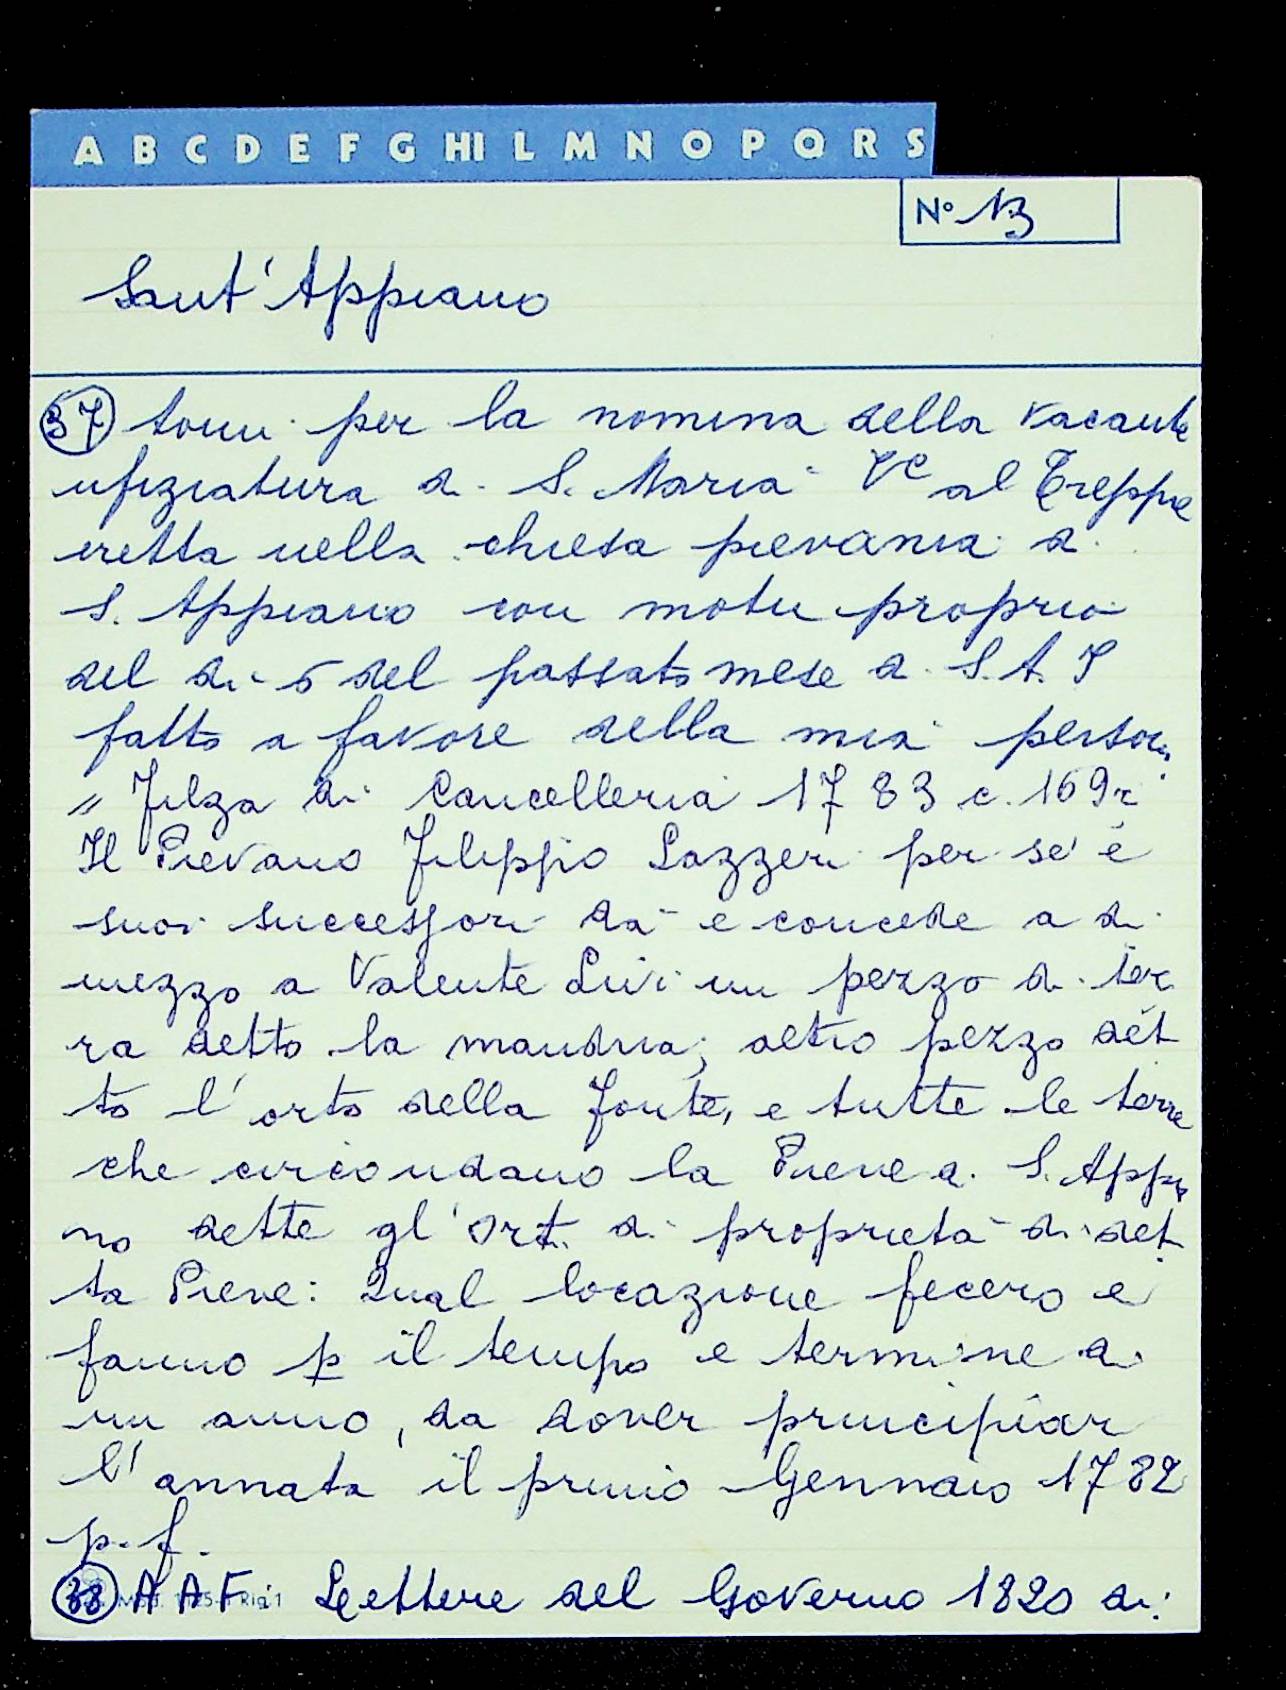 A B C D E F G HI L M N O P Q R S
N° 13
Sant'Appiano
37 tom per la nomina della vacante
ufiziatura di S. Maria Vc al Treppie
eretta nella chiesa pievania di
S. Appiano con motu proprio
del di 5 del passato mese di S. A. I
fatto a favore della mia person
" Filza di Cancelleria 1783 c. 169r
Il Pievano Filippo Lazzeri per sé e
suoi successori dà e concede a di
mezzo a Valente Livi un pezzo di ter
ra detto la mandria; altro pezzo det
to l'orto della Fonte, e tutte le terre
che circondano la Pieve di S. Appia
no dette gl'Orti di proprietà di det
ta Pieve: Qual locazione fecero e
fanno p il tempo e termine di
un anno, da dover principiar
l'annata il primo Gennaio 1782
p. f.
38 A A F: Lettere del Governo 1820 di: